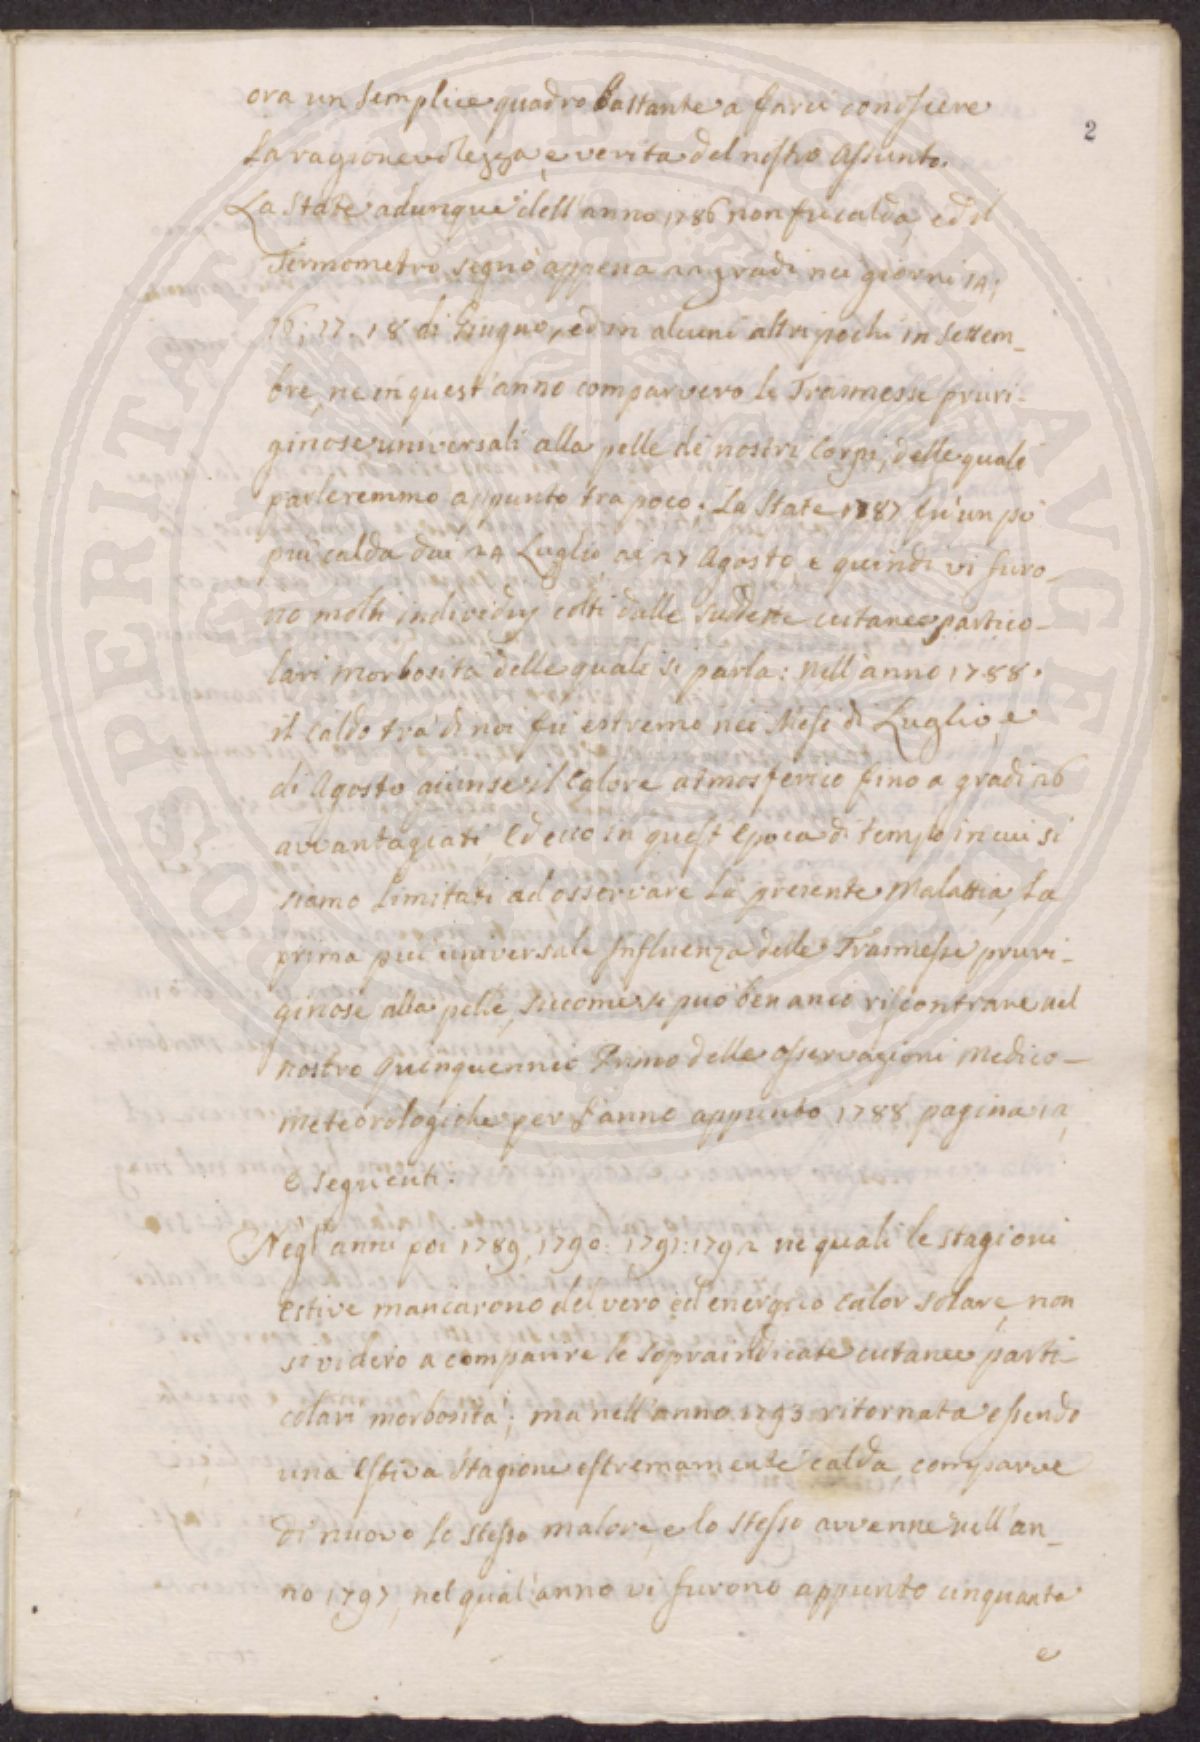 2
ora un semplice quadro bastante a farci conoscere
La ragionevolezza, e verita del nostro Assunto.
La State adunque dell'anno 1786 non fu calda, ed il
Termometro segnò appena 22 gradi nei giorni 14;
16; 17. 18 di Giugno, ed in alcuni altri pochi in Settem_
bre, ne in quest'anno comparvero le Trasmesse pruri_
ginose universali alla pelle de nostri Corpi, delle quali
parleremmo appunto tra poco; La State 1787 fù un pò
più calda dai 24 Luglio ai 27 Agosto, e quindi vi furo_
no molti individuj colti dalle suddette cutanee partico_
lari morbosità delle quali si parla: Nell'anno 1788.
il Caldo trà di noi fù estremo nei Mesi di Luglio, e
di Agosto giunse il Calore atmosferico fino a gradi 26
avvantagiati, Ed ecco in quest'Epoca di tempo in cui si
siamo Limitati ad osservare La presente Malattia, La
prima più universale Influenza delle Trasmesse pruri_
ginose alla pelle, siccome si può ben anco riscontrare nel
nostro Quinquennio Primo delle osservazioni Medico_
meteorologiche per l'anno appunto 1788 pagina 12,
e seguenti.
Negl'anni poi 1789, 1790: 1791: 1792 ne quali le stagioni
estive mancarono del vero ed energico calor solare, non
si videro a comparire le sopraindicate cutanee parti
colari morbosità; ma nell'anno 1793 ritornata essendo
una Estiva Stagione estremamente calda, comparve
di nuovo lo stesso malore, e lo stesso avvenne nell'an_
no 1797, nel qual'anno vi furono appunto cinquanta
e
PROSPERITATI PUBLICAE AUGENDAE